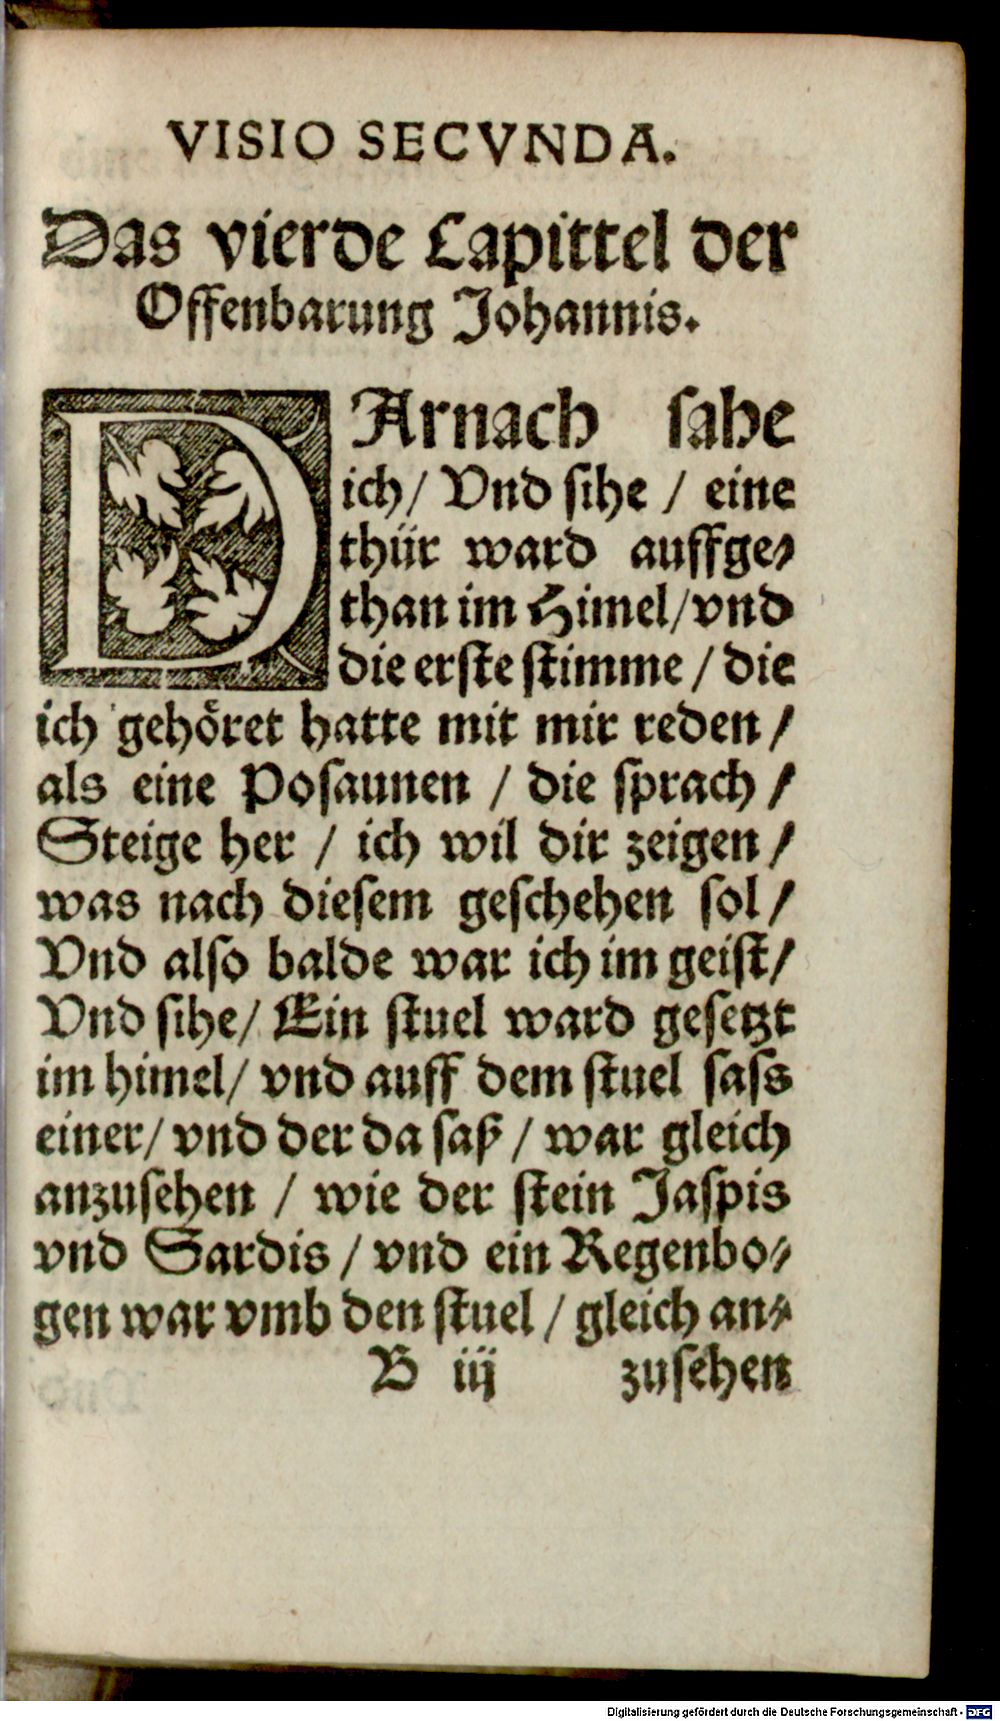 VISIO SECVNDA.
Das vierde Capittel der
Offenbarung Johannis.
DArnach sahe
ich/ Vnd sihe / eine
thür ward auffge-
than im Himel/vnd
die erste stimme / die
ich gehöret hatte mit mir reden /
als eine Posaunen / die sprach /
Steige her / ich wil dir zeigen /
was nach diesem geschehen sol /
Vnd also balde war ich im geist/
Vnd sihe/ Ein stuel ward gesetzt
im himel/ vnd auff dem stuel sass
einer/ vnd der da saß / war gleich
anzusehen / wie der stein Jaspis
vnd Sardis / vnd ein Regenbo-
gen war vmb den stuel / gleich an-
B iij zusehen
Digitalisierung gefördert durch die Deutsche Forschungsgemeinschaft - DFG